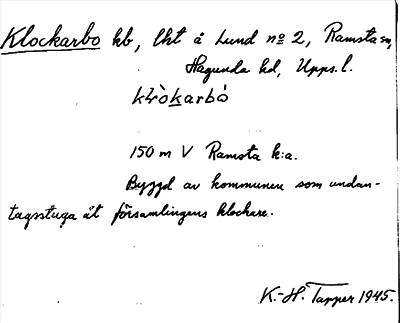 Klockarbo hb, lht å Lund nº 2, Ramsta sn,
Hagunda hd, Upps. l.
klòkarbó
150 m V Ramsta k:a.
Byggd av kommunen som undan-
tagsstuga åt församlingens klockare.
K.-H. Tapper 1945.